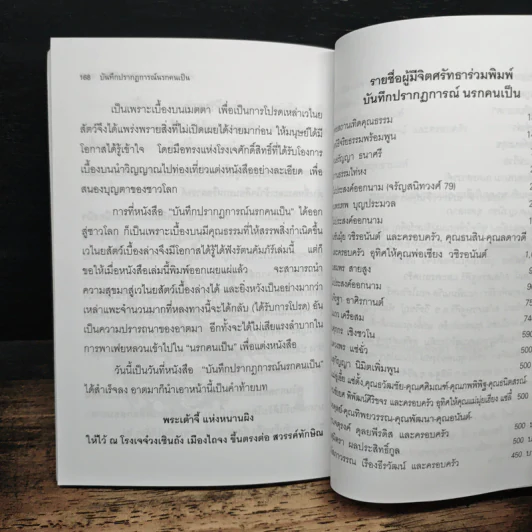 188 บันทึกปรากฏการณ์นรกคนเป็น
เป็นเพราะเบื้องบนเมตตา เพื่อเป็นการโปรดเหล่าเวไนย
สัตว์จึงได้แพร่งพรายสิ่งที่ไม่เปิดเผยได้ง่ายมาก่อน ให้มนุษย์ได้มี
โอกาสได้รู้เข้าใจ โดยมีอทรงแห่งโรงเจศักดิ์สิทธิ์ที่ได้รับโองการ
เบื้องบนนำวิญญาณไปท่องเที่ยวแต่งหนังสืออย่างละเอียด เพื่อ
สนองบุญตาของชาวโลก
การที่หนังสือ "บันทึกปรากฏการณ์นรกคนเป็น" ได้ออก
สู่ชาวโลก ก็เป็นเพราะเบื้องบนมีคุณธรรมที่ให้สรรพสิ่งกำเนิดขึ้น
เวไนยสัตว์เบื้องล่างจึงมีโอกาสได้รู้ได้ฟังรัตนคัมภีร์เล่มนี้ แต่ก็
ขอให้เมื่อหนังสือเล่มนี้พิมพ์ออกเผยแผ่แล้ว จะสามารถนำ
ความสุขมาสู่เวไนยสัตว์เบื้องล่างได้ และยิ่งหวังเป็นอย่างมากว่า
เหล่าแพะจำนวนมากที่หลงทางนี้จะได้กลับ (ได้รับการโปรด) อัน
เป็นความปรารถนาของอาตมา อีกทั้งจะได้ไม่เสียแรงลำบากใน
การพาเฟยหลวนเข้าไปใน "นรกคนเป็น" เพื่อแต่งหนังสือ
วันนี้เป็นวันที่หนังสือ "บันทึกปรากฏการณ์นรกคนเป็น"
ได้สำเร็จลง อาตมาก็นำเอาหน้านี้เป็นคำท้ายบท
พระเต้าจี้ แห่งหนานผิง
ให้ไว้ ณ โรงเจจ้วงเซินถัง เมืองไถจง ขึ้นตรงต่อ สวรรค์ทักษิณ
รายชื่อผู้มีจิตศรัทธาร่วมพิมพ์
บันทึกปรากฏการณ์ นรกคนเป็น
สถานเทิดคุณธรรม
วิจัยธรรมพร้อมพูน
ธนาศรี
ประสงค์ออกนาม (จรัญสนิทวงศ์ 79)
บุญประมวล
ประสงค์ออกนาม
วชิรอนันต์ และครอบครัว, คุณธนสิน-คุณลดาวดี
และครอบครัว อุทิศให้คุณพ่อเซียง วชิรอนันต์
สายสูง
ประสงค์ออกนาม
อาศิรกานต์
เครือสม
เชิงชวโน 590
แซ่อั้ว 500
นิมิตเพิ่มพูน 500
และครอบครัว อุทิศให้คุณแม่มุ่ยเฮียง แซ่ลี้ 500
คุณทิพยวรรณ-คุณพัฒนา-คุณอนันต์
ดุลยพีรดิส และครอบครัว 500
ผลประสิทธิ์กูล 500
เรืองธีรวัฒน์ และครอบครัว 450